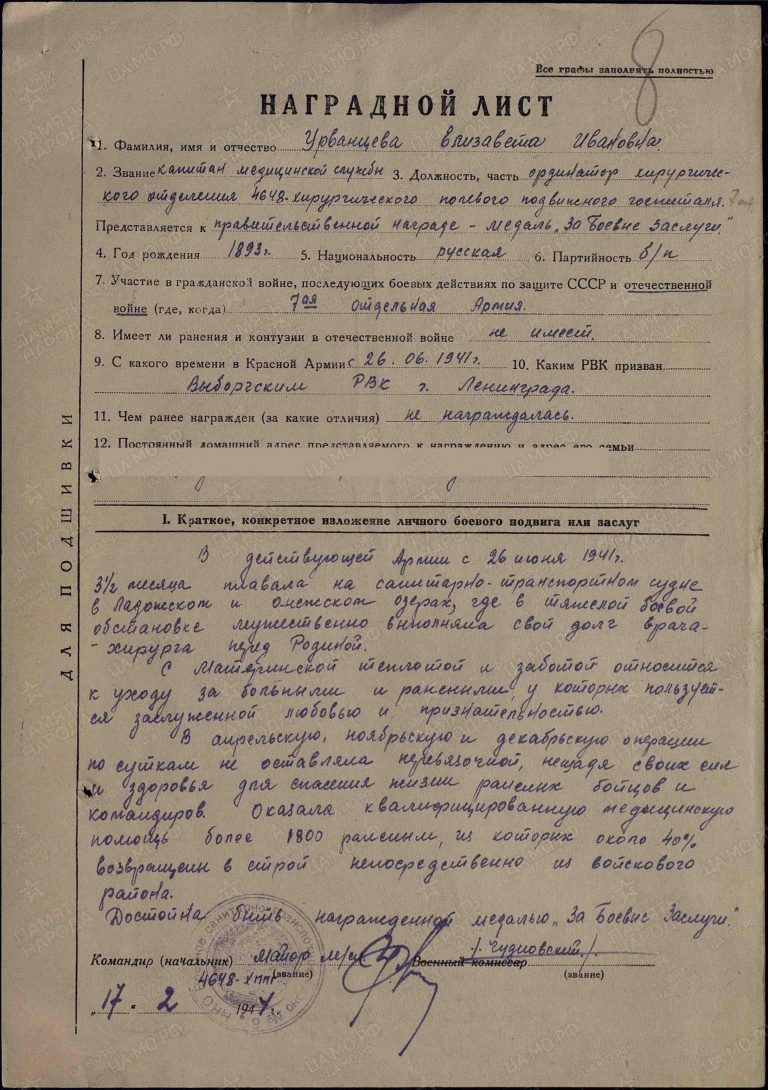 8
Все графы заполнять полностью
НАГРАДНОЙ ЛИСТ
1. Фамилия, имя и отчество Урванцева Елизавета Ивановна.
2. Звание капитан медицинской службы 3. Должность, часть ординатор хирургичес-
кого отделения 4648-хирургического полевого подвижного госпиталя.
Представляется к правительственной награде – медаль „За Боевые Заслуги."
4. Год рождения 1893г. 5. Национальность русская 6. Партийность б/п
7. Участие в гражданской войне, последующих боевых действиях по защите СССР и отечественной
войне (где, когда) 7ая отдельная Армия.
8. Имеет ли ранения и контузии в отечественной войне не имеет.
9. С какого времени в Красной Армии с 26.06.1941г. 10. Каким РВК призван
Выборгским РВК г. Ленинграда.
11. Чем ранее награжден (за какие отличия) не награждалась.
12. Постоянный домашний адрес представляемого к награждению и адрес его семьи
ДЛЯ ПОДШИВКИ
I. Краткое, конкретное изложение личного боевого подвига или заслуг
В действующей Армии с 26 июня 1941г.
3½ месяца плавала на санитарно-транспортном судне
в Ладожском и онежском озерах, где в тяжелой боевой
обстановке мужественно выполняла свой долг врача-
-хирурга перед Родиной.
С Материнской теплотой и заботой относится
к уходу за больными и ранеными, у которых пользует-
ся заслуженной любовью и признательностью.
В апрельскую, ноябрьскую и декабрьскую операции
по суткам не оставляла перевязочной, нещадя своих сил
и здоровья для спасения жизни раненых бойцов и
командиров. Оказала квалифицированную медицинскую
помощь более 1800 раненым, из которых около 40%
возвращены в строй непосредственно из войскового
района.
Достойна быть награжденной медалью „За Боевые Заслуги."
Командир (начальник) Майор м/с /Чудновский./
Военный комиссар
4648-ХППГ (звание) (звание)
„17" 2 1944г.